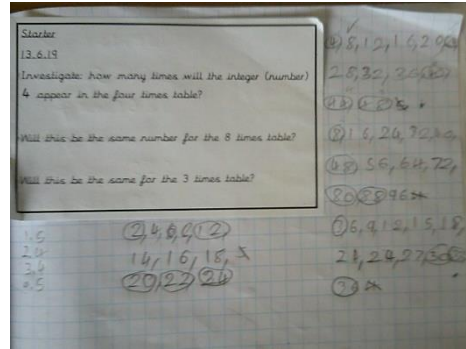 Starter
13.6.19
Investigate: how many times will the integer (number)
4 appear in the four times table?
Will this be the same number for the 8 times table?
Will this be the same for the 3 times table?
4, 8, 12, 16, 20, 24
28, 32, 36, 40
44 48
8, 16, 24, 32, 40,
48, 56, 64, 72,
80 88 96
3, 6, 9, 12, 15, 18,
21, 24, 27, 30
36
2, 4, 6, 8, 12
14, 16, 18,
20, 22 24
1.5
2.4
3.4